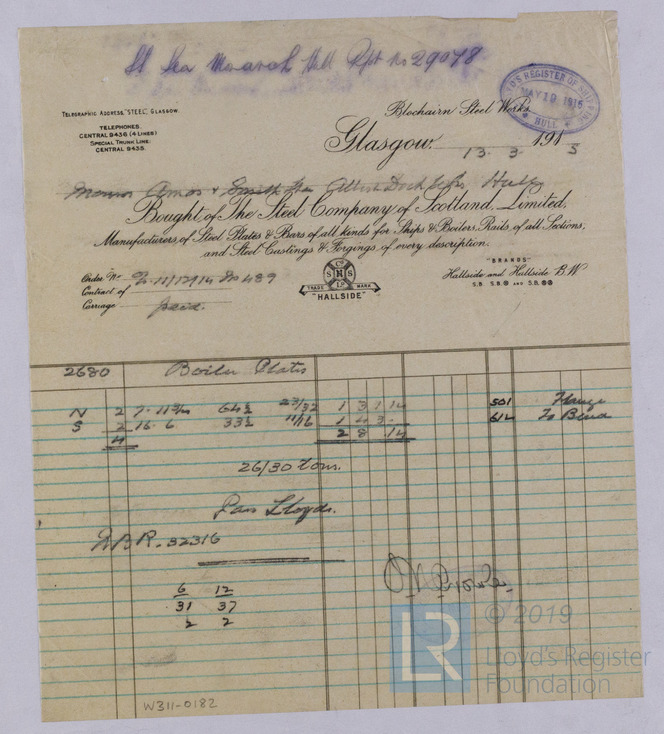 St Sea Monarch Hull Rpt No 29078
LLOYD'S REGISTER OF SHIPPING
MAY 19 1915
HULL
TELEGRAPHIC ADDRESS "STEEL", GLASGOW.
TELEPHONES.
CENTRAL 9436 (4 LINES)
SPECIAL TRUNK LINE:
CENTRAL 9435.
Blochairn Steel Works
Glasgow, 13. 3. 1915
Messrs Amos & Smith Albert Dock Hull
Bought of The Steel Company of Scotland, Limited,
Manufacturers, of Steel Plates & Bars of all kinds for Ships & Boilers, Rails of all Sections,
and Steel Castings & Forgings, of every description.
Order No 11/12/14 No 489
Contract of
Carriage paid.
Co
S H S
LD
TRADE MARK
"HALLSIDE"
"BRANDS"
Hallside and Hallside B.W
S.B. S.B. AND S.B.
2680 Boiler Plates
N 2 7. 11 64½ 23/32 1 3 1 14 501 Flange
S 2 16. 6 33½ 11/16 1 4 3 - 612 To Bend
4 2 8 . 14
26/30 tons.
Pass Lloyds.
B R. 32316
6 12
31 37
2 2
LR
© 2019
Lloyd's Register
Foundation
W311-0182